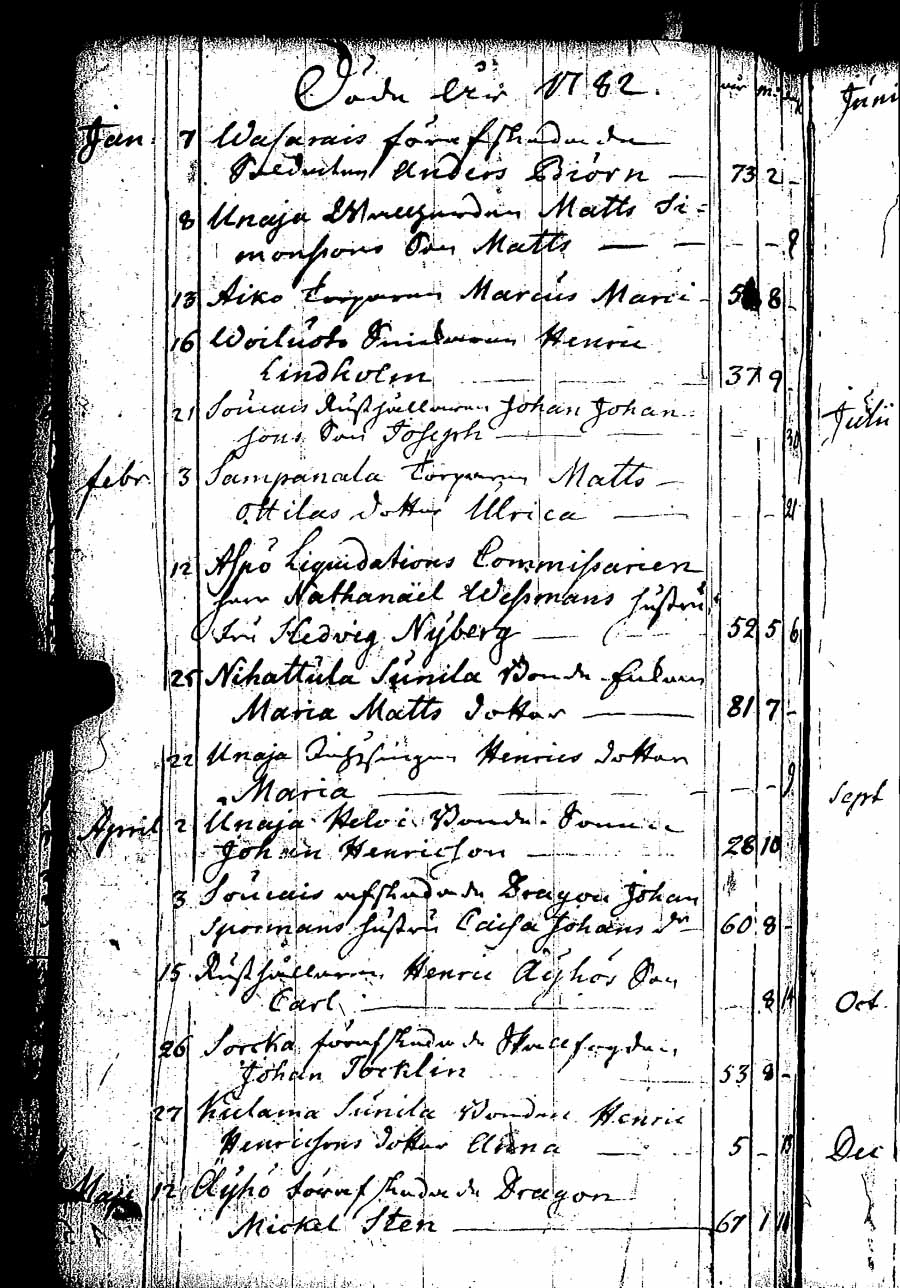 Döde År 1782.
år m: dag
Jan. 7 Wasarais förafskedade
Soldaten Anders Biörn 73 2 -
8 Unaja Matts Si=
monssons Son Matts - - 9
13 Aiko Torparen Marcus Marci 8 -
16 Woiluoto Henric
Lindholm 37 9 -
21 Soucais Rusthållaren Johan Johan
sons Son Joseph 30
febr. 3 Sampanala Torparen Matts
Ottilas dotter Ulrica - 21
12 Aspö Liquidations Commissarien
herr Nathanaël Wessmans hustru
Fru Hedvig Nyberg 52 5 6
25 Nihattula Sunila Bonde Enkan
Maria Matts dotter 81 7 -
22 Unaja Henrics dotter
Maria - - 9
April 2 Unaja Heloi Bonde Sonen
Johan Henricson 28 10
3 Soucais afskedade Dragon Johan
Spormans hustru Caisa Johans dr 60 8 -
15 Rusthållaren Henric Äyhös Son
Carl 8 14
26 Sorcka förafskedade
Johan Tocklin 53 8 -
27 Kulama Sunila Bonden Henric
Henricsons dotter Anna 5 -
Maji 12 Äyhö förafskedade Dragon
Mickel Sten 67 1 11
Juni
Julii
Sept
Oct.
Dec